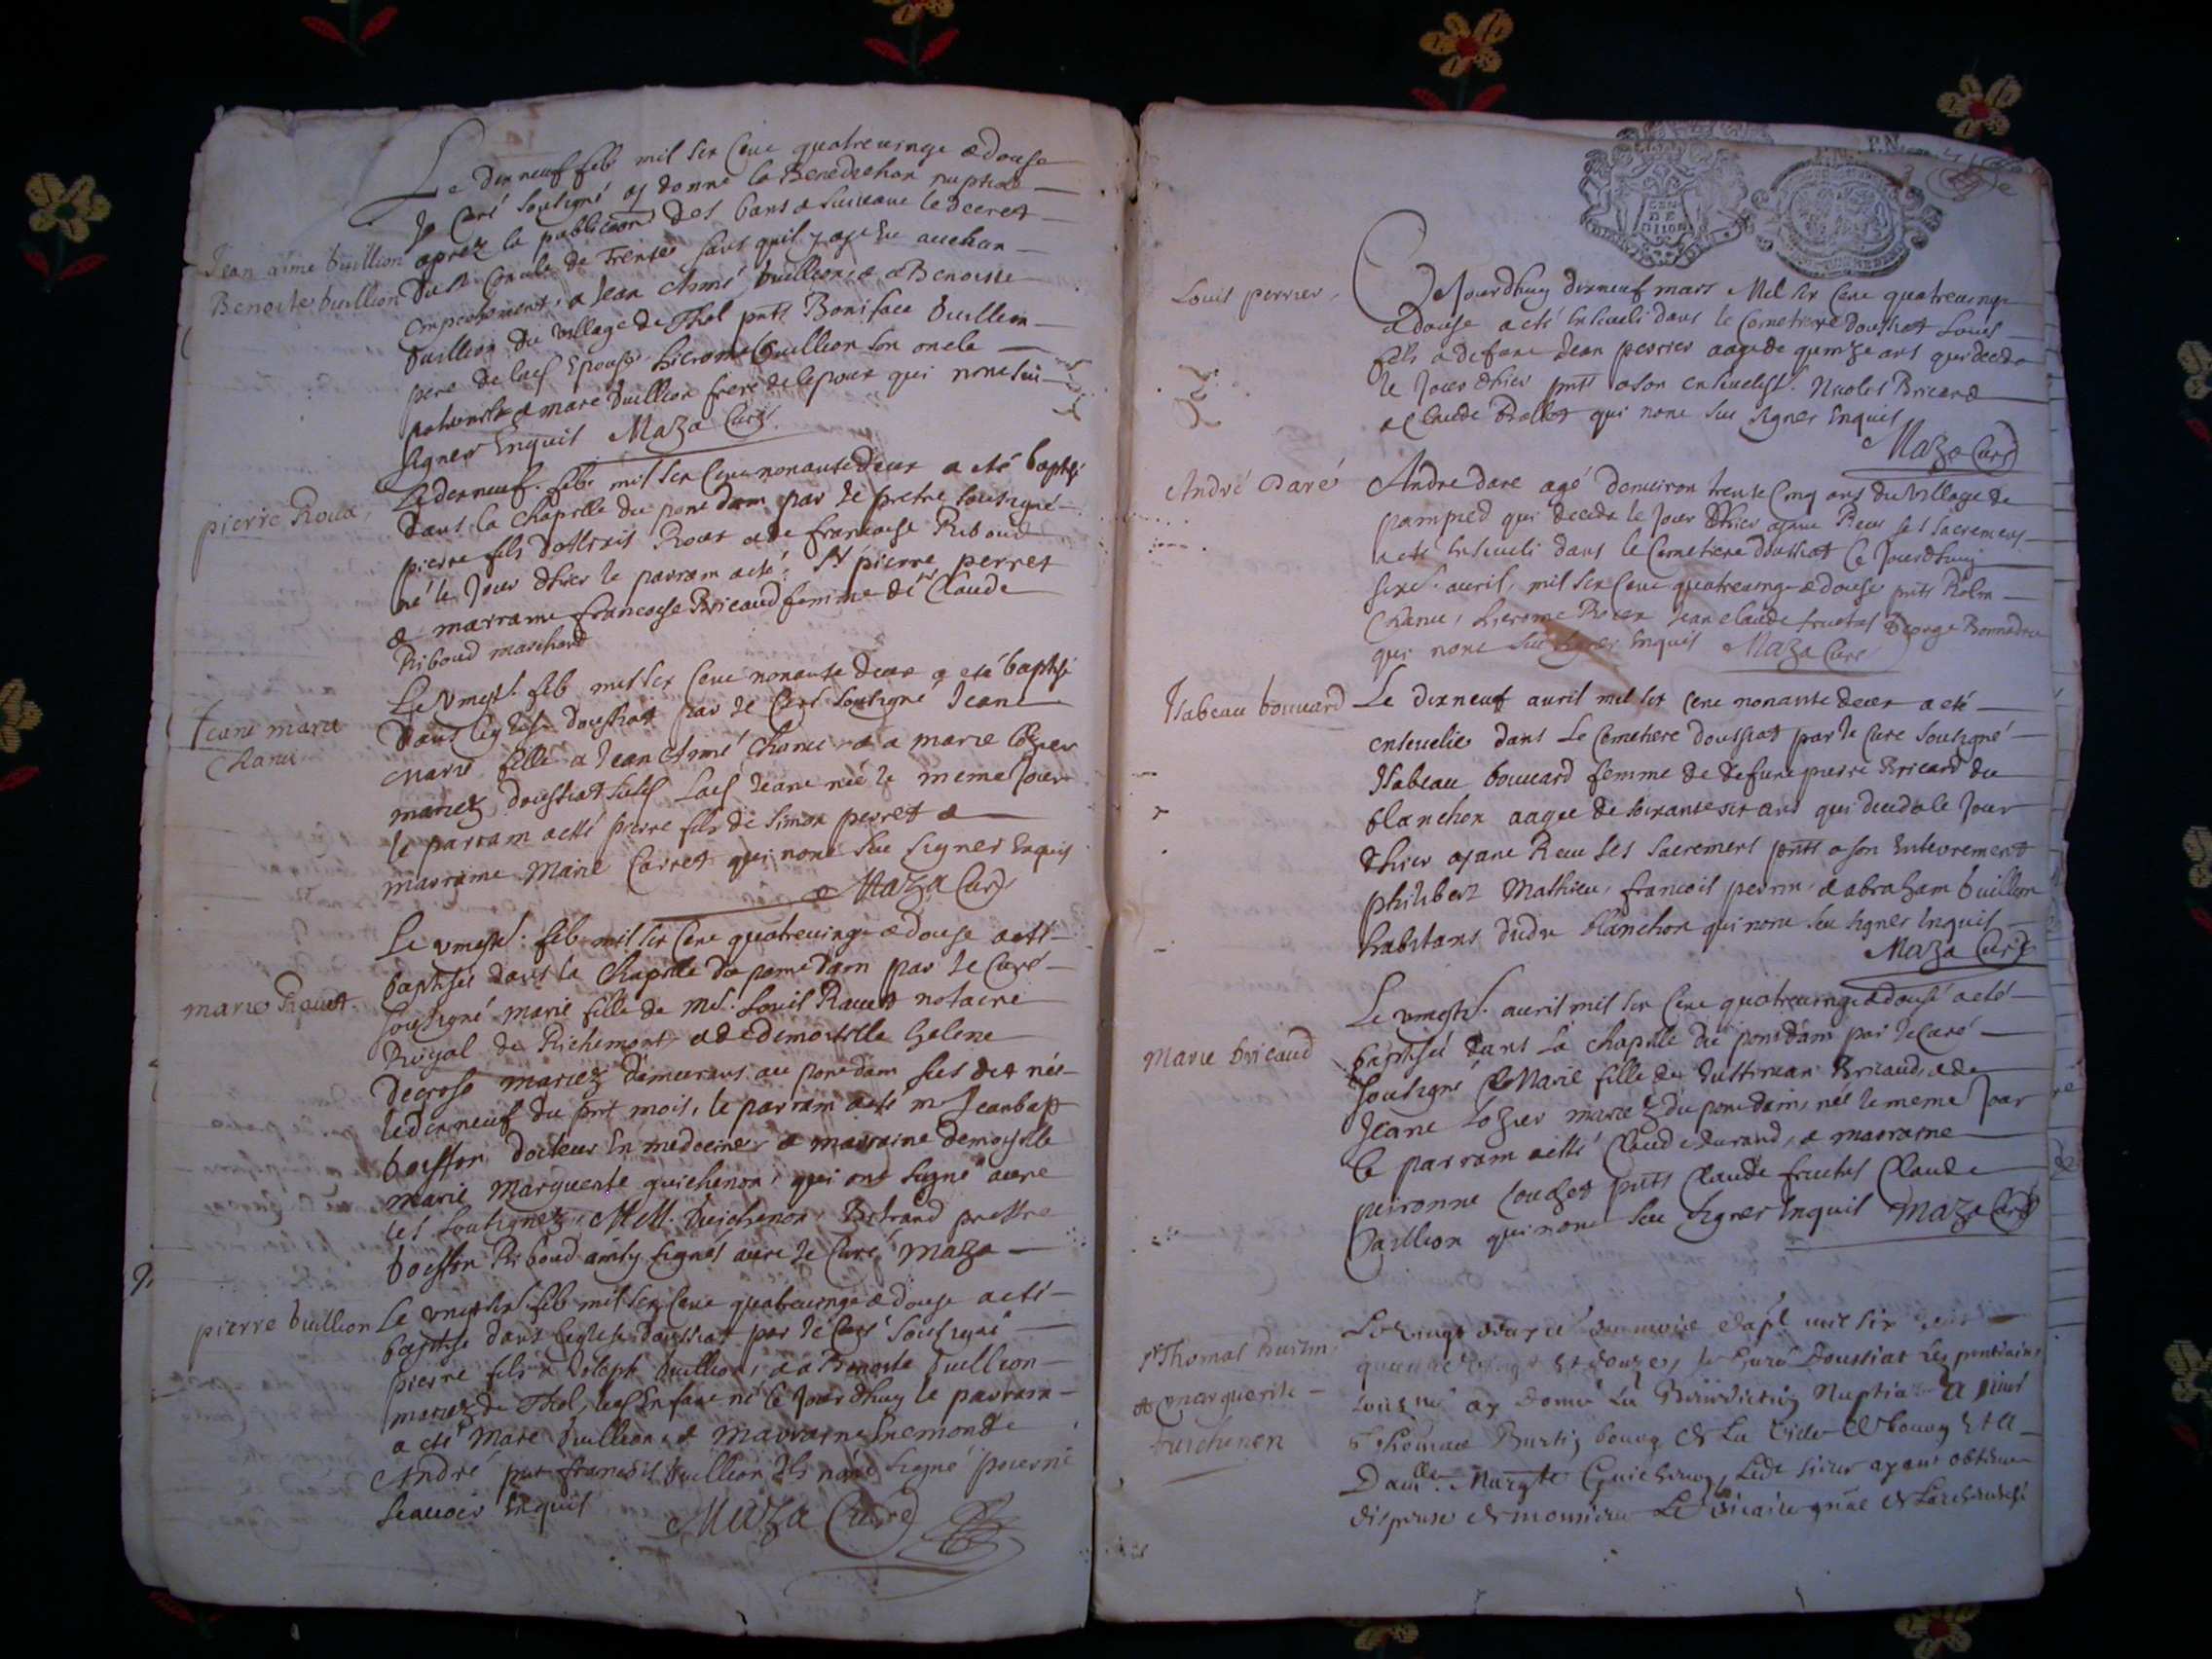 Le dixneuf feb mil six Cent quatrevingt & douse
Je Curé sousigné ay donné la Benediction nuptiale
Jean aimé Vuillion
Benoite Vuillion
aprez la publication des bans & suivant le decret
du st Concile de Trente sans quil y aye eu auchun
empechement, a Jean Aimé Vuillion & a Benoiste
Vuillion du village de Thol pnts Boniface Vuillion
pere de lad Epouse hierome Vuillion son oncle
paternel & marc Vuillion frere de lepoux qui nont sceu
signer Enquis Maza Curé
pierre Roux
Le dixneuf feb mil six Cent nonante deux a eté baptisé
dans la Chapelle du pont dam par le pretre soussigné
pierre fils d Roux & de francoise Riboud
né le Jour dhier le parrain a eté Sr pierre perret
& marraine francoise Bricaud femme de Sr Claude
Riboud marchand
Jeane marie
Chanu
Le vingt feb mil six Cent nonante deux a eté baptisé
dans leglise doussiat par le Curé soussigné Jeane
marie fille a Jean Aimé Chanu & a marie
mariez doussiat lad Jeane née le meme Jour
le parrain a eté pierre fils de Simon perret &
marraine Marie Carret qui nont sceu signer Enquis
Maza Curé
marie Ravet
Le vingt feb mil six Cent quatrevingt & douse a eté
baptisée dans la Chapelle du pont dam par le Curé
soussigné marie fille de Me Louis Ravet notaire
Royal de Richemont & de demoiselle helene
Decroso mariez demeurans au pont dam née
le dixneuf du pnt mois, le parrain a eté mr Jean bap
boisson docteur En medecine & marraine demoiselle
marie Marguerite guichenon, qui ont signé avec
les soussignez, M M. Guichenon Bertrand prestre
boisson Riboud ainsy signés avec le Curé Maza
pierre Vuillion
Le feb mil six Cent quatrevingt & douse a eté
baptisé dans leglise doussiat par le Curé soussigné
pierre fils a Joseph Vuillion, & a Benoite Vuillion
mariez de Thol, led Enfant né Ce Jourdhuy le parrain
a eté Marc Vuillion & marraine
André pnt francois Vuillion Ils nont signé pour ne
scauoir Enquis Maza Curé
GEN
DE
DIJON
Louis perrier
Cejourdhuy dixneuf mars Mil six Cent quatrevingt
& douse a eté Enseveli dans le Cemetiere doussiat Louis
fils a defunt Jean perrier aagé de quinze ans qui deceda
le Jour dhier pnts a son ensevelist. Nicolas Bricard
& Claude Ballet qui nont sceu signer Enquis
Maza Curé
André Daré
André dare agé denuiron trente Cinq ans du village de
pampied qui deceda le Jour dhier ayant Receu ses sacremens
a eté Enseveli dans le Cemetiere doussiat Ce Jourdhuy
avril, mil six Cent quatrevingt & douse pnts
Chanu, hierome Jean claude fructus & george
qui nont sceu signer Enquis Maza Curé
Isabeau bouuard
Le dixneuf auril mil six Cent nonante deux a eté
ensevelie dans Le Cemetiere doussiat par le Curé soussigné
Isabeau bouuard femme de defunt pierre Bricard du
blanchon aagée de soixante six ans qui deceda le Jour
dhier ayant Receu ses sacremens pnts a son Enterrement
philibert Mathieu, francois perrin, & abraham Vuillion
habitans dudit blanchon qui nont sceu signer Enquis
Maza Curé
Marie bricaud
Le auril mil six Cent quatrevingt & douse a eté
baptisée dans la Chapelle du pont dam par le Curé
soussigné Marie fille de Justinian Bricaud, & de
Jeane mariez du pont dam, née le meme Jour
le parrain a eté Claude durand, & marraine
peironne pnts Claude fructus Claude
Vuillion qui nont sceu signer Enquis Maza Curé
Sr Thomas Burtin
& marguerite
Guichenon
Le vingt du mois mil six cent
quatre vingt et douze, Je Curé Doussiat Les pontdains
soussigné ay donné La Benediction Nuptiale a sieur
Thomas Burtin bourg de La Ville de bourg et a
Damlle. Margte Guichenon, Ledt sieur ayant obtenu
dispense de monsieur Le vicaire gnal de